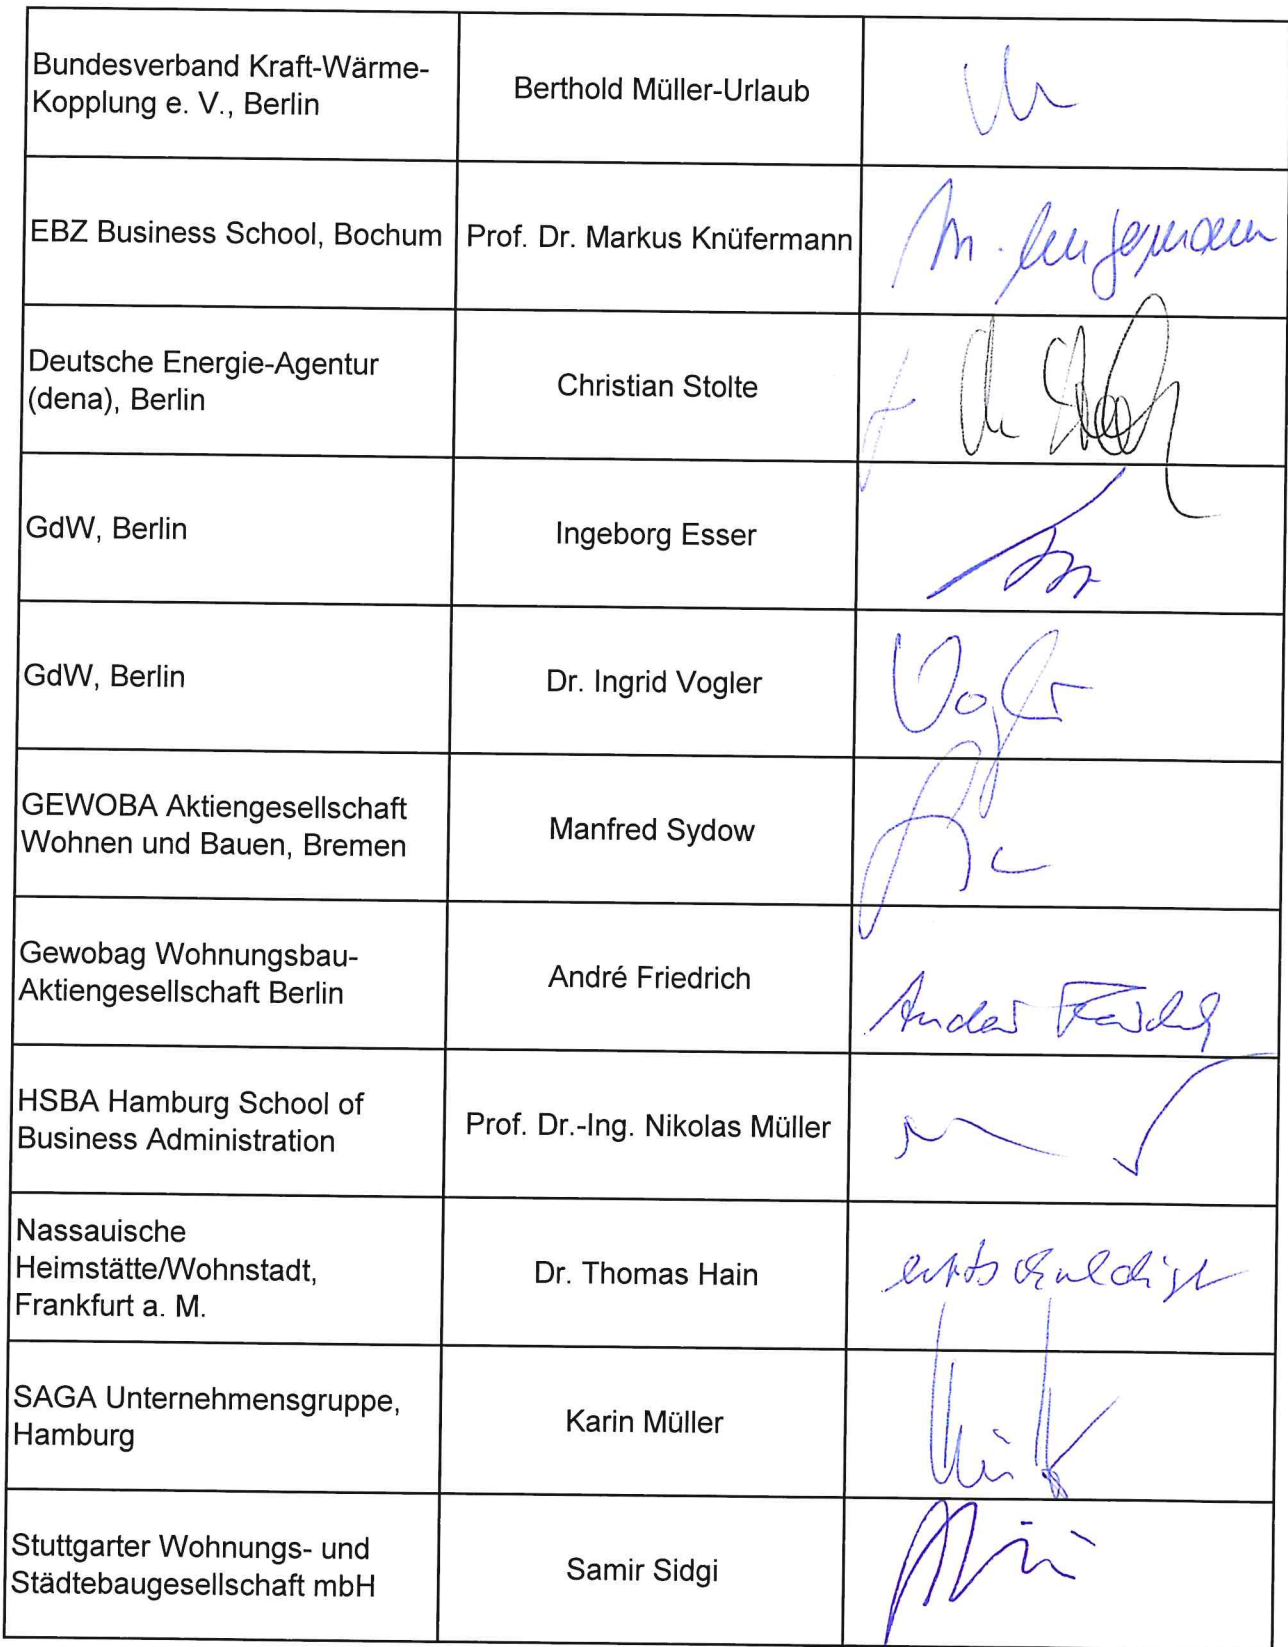 Bundesverband Kraft-Wärme-
Kopplung e. V., Berlin
Berthold Müller-Urlaub
EBZ Business School, Bochum
Prof. Dr. Markus Knüfermann
Deutsche Energie-Agentur
(dena), Berlin
Christian Stolte
GdW, Berlin
Ingeborg Esser
GdW, Berlin
Dr. Ingrid Vogler
Vogler
GEWOBA Aktiengesellschaft
Wohnen und Bauen, Bremen
Manfred Sydow
Gewobag Wohnungsbau-
Aktiengesellschaft Berlin
André Friedrich
HSBA Hamburg School of
Business Administration
Prof. Dr.-Ing. Nikolas Müller
Nassauische
Heimstätte/Wohnstadt,
Frankfurt a. M.
Dr. Thomas Hain
entschuldigt
SAGA Unternehmensgruppe,
Hamburg
Karin Müller
Stuttgarter Wohnungs- und
Städtebaugesellschaft mbH
Samir Sidgi